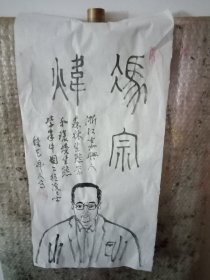 馮宗
煒
浙江嘉興人
森林生态学
和環境生態
學家中國工程院院士